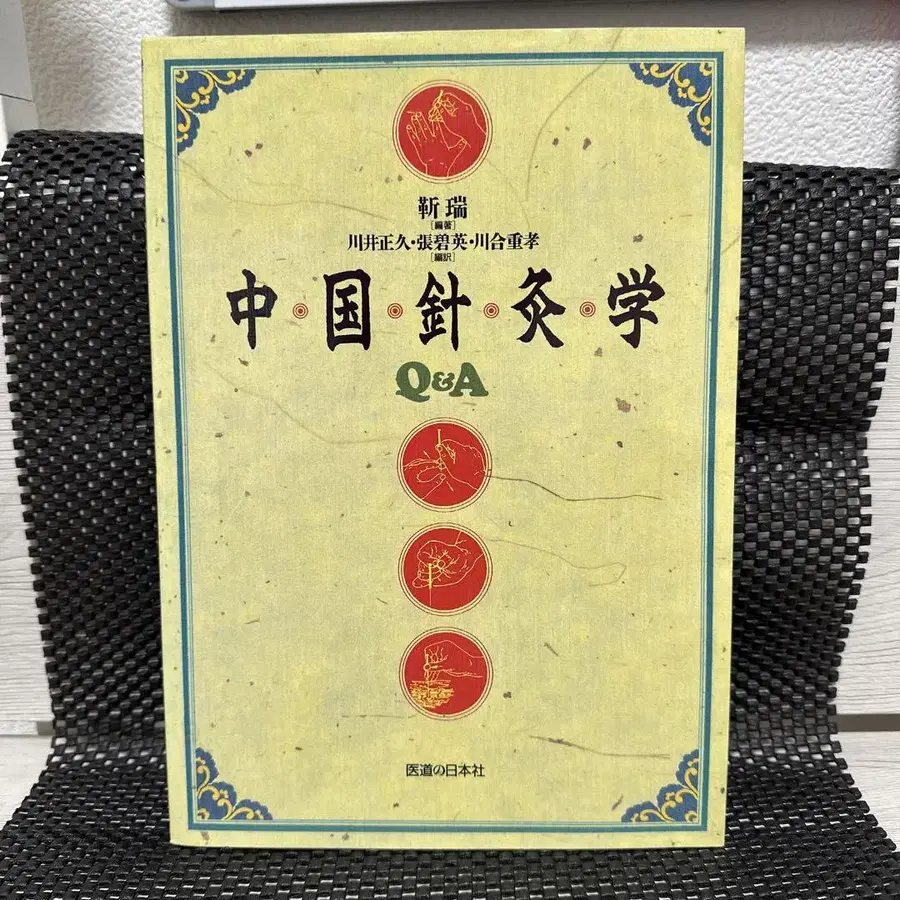 靳瑞
[編著]
川井正久・張碧英・川合重孝
[編訳]
中・国・針・灸・学
Q&A
医道の日本社